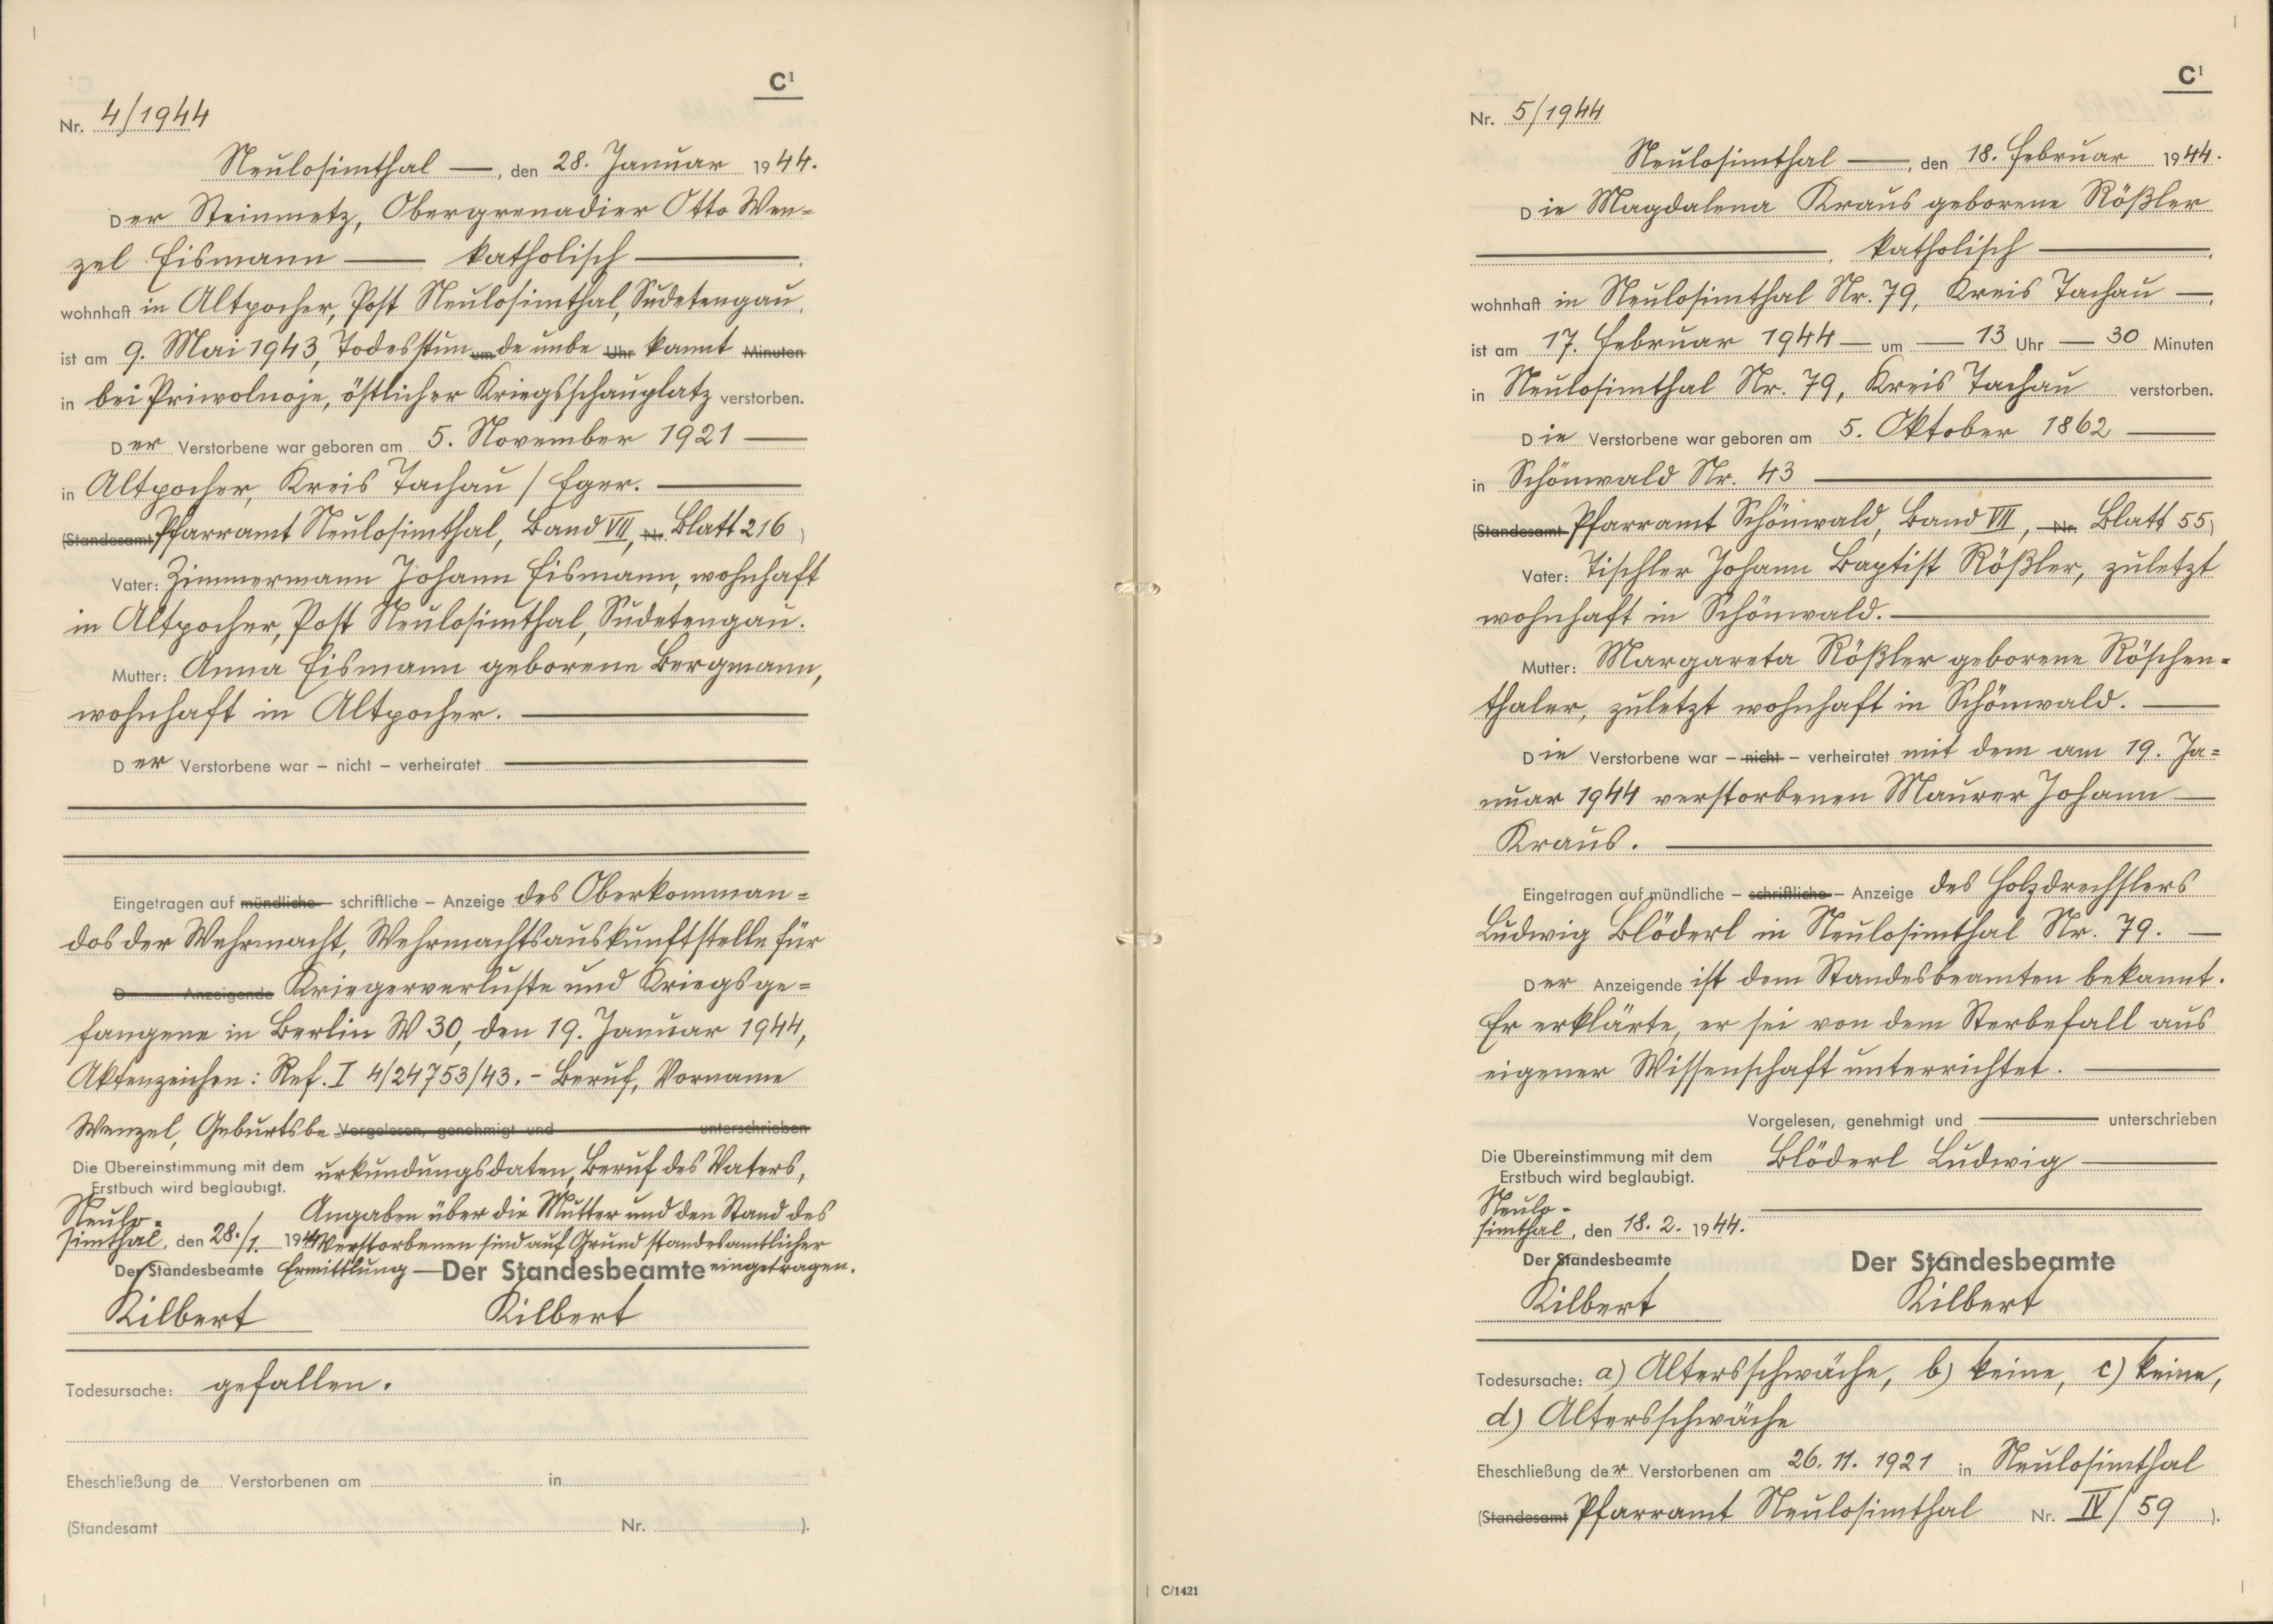 C¹
Nr. 4/1944
Neulosimthal —, den 28. Januar 1944.
Der Steinmetz, Obergrenadier Otto Wen=
zel Eismann — katholisch —.
wohnhaft in Altpocher, Post Neulosimthal, Sudetengau,
ist am 9. Mai 1943, Todesstun um de unbe Uhr kannt Minuten
in bei Priwolnoje, östlicher Kriegsschauplatz verstorben.
Der Verstorbene war geboren am 5. November 1921 —
in Altpocher, Kreis Tachau / Eger. —
(Standesamt Pfarramt Neulosimthal, Band VII, Nr. Blatt 216)
Vater: Zimmermann Johann Eismann, wohnhaft
in Altpocher, Post Neulosimthal, Sudetengau.
Mutter: Anna Eismann geborene Bergmann,
wohnhaft in Altpocher. —
Der Verstorbene war – nicht – verheiratet —
Eingetragen auf mündliche – schriftliche – Anzeige des Oberkomman=
dos der Wehrmacht, Wehrmachtsauskunftstelle für
D Anzeigende Kriegerverluste und Kriegsge=
fangene in Berlin W 30, den 19. Januar 1944,
Aktenzeichen: Ref. I 4/24753/43. – Beruf, Vorname
Wenzel, Geburtsbe Vorgelesen, genehmigt und unterschrieben
Die Übereinstimmung mit dem urkundungsdaten, Beruf des Vaters,
Erstbuch wird beglaubigt.
Neulo- Angaben über die Mutter und den Stand des
simthal, den 28./1. 1944 Verstorbenen sind auf Grund standesamtlicher
Der Standesbeamte Ermittlung — Der Standesbeamte eingetragen.
Kilbert Kilbert
Todesursache: gefallen.
Eheschließung de Verstorbenen am in
(Standesamt Nr. ).
C¹
Nr. 5/1944
Neulosimthal —, den 18. Februar 1944.
Die Magdalena Kraus geborene Rößler
—, katholisch —,
wohnhaft in Neulosimthal Nr. 79, Kreis Tachau —,
ist am 17. Februar 1944 — um — 13 Uhr — 30 Minuten
in Neulosimthal Nr. 79, Kreis Tachau verstorben.
Die Verstorbene war geboren am 5. Oktober 1862 —
in Schönwald Nr. 43 —
(Standesamt Pfarramt Schönwald, Band VII, Nr. Blatt 55)
Vater: Tischler Johann Baptist Rößler, zuletzt
wohnhaft in Schönwald. —
Mutter: Margareta Rößler geborene Röschen=
thaler, zuletzt wohnhaft in Schönwald. —
Die Verstorbene war – nicht – verheiratet mit dem am 19. Ja=
nuar 1944 verstorbenen Maurer Johann —
Kraus. —
Eingetragen auf mündliche – schriftliche – Anzeige des Holzdrechslers
Ludwig Blöderl in Neulosimthal Nr. 79. —
Der Anzeigende ist dem Standesbeamten bekannt.
Er erklärte, er sei von dem Sterbefall aus
eigener Wissenschaft unterrichtet. —
Vorgelesen, genehmigt und — unterschrieben
Die Übereinstimmung mit dem Blöderl Ludwig —
Erstbuch wird beglaubigt.
Neulo-
simthal, den 18. 2. 1944.
Der Standesbeamte Der Standesbeamte
Kilbert Kilbert
Todesursache: a) Altersschwäche, b) keine, c) keine,
d) Altersschwäche
Eheschließung der Verstorbenen am 26. 11. 1921 in Neulosimthal
(Standesamt Pfarramt Neulosimthal Nr. IV/59 ).
C/1421